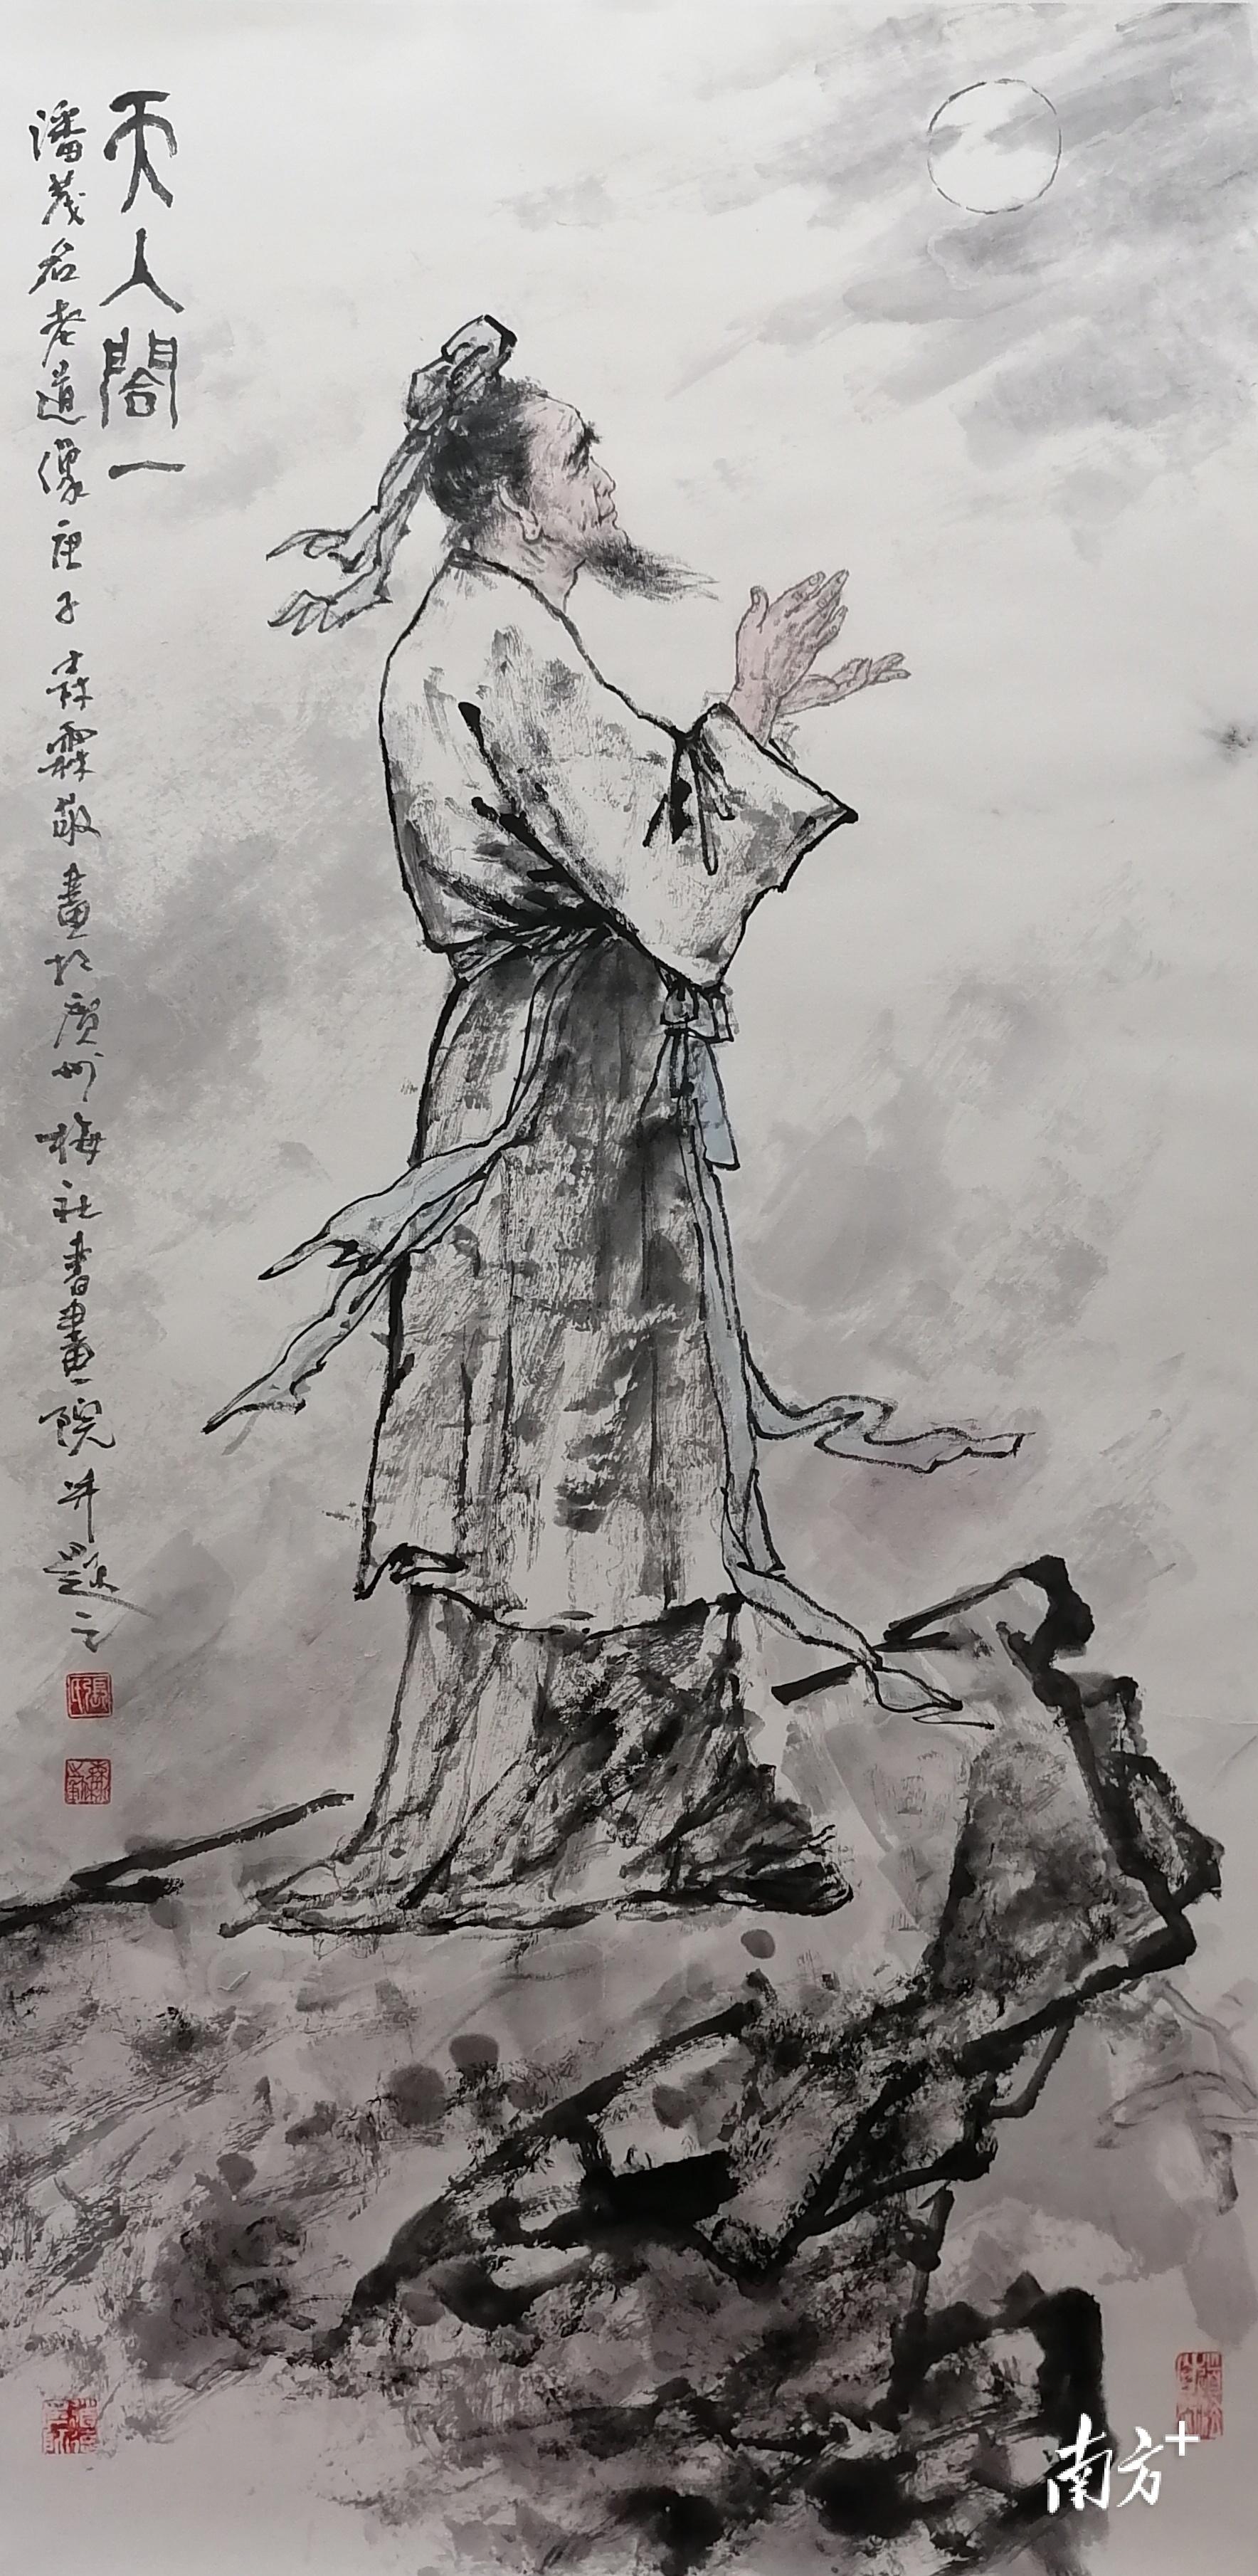 天人閤一
潘茂名老道像庚子森霖敬畫於廣州梅社書畫院并題之
張氏
南方+